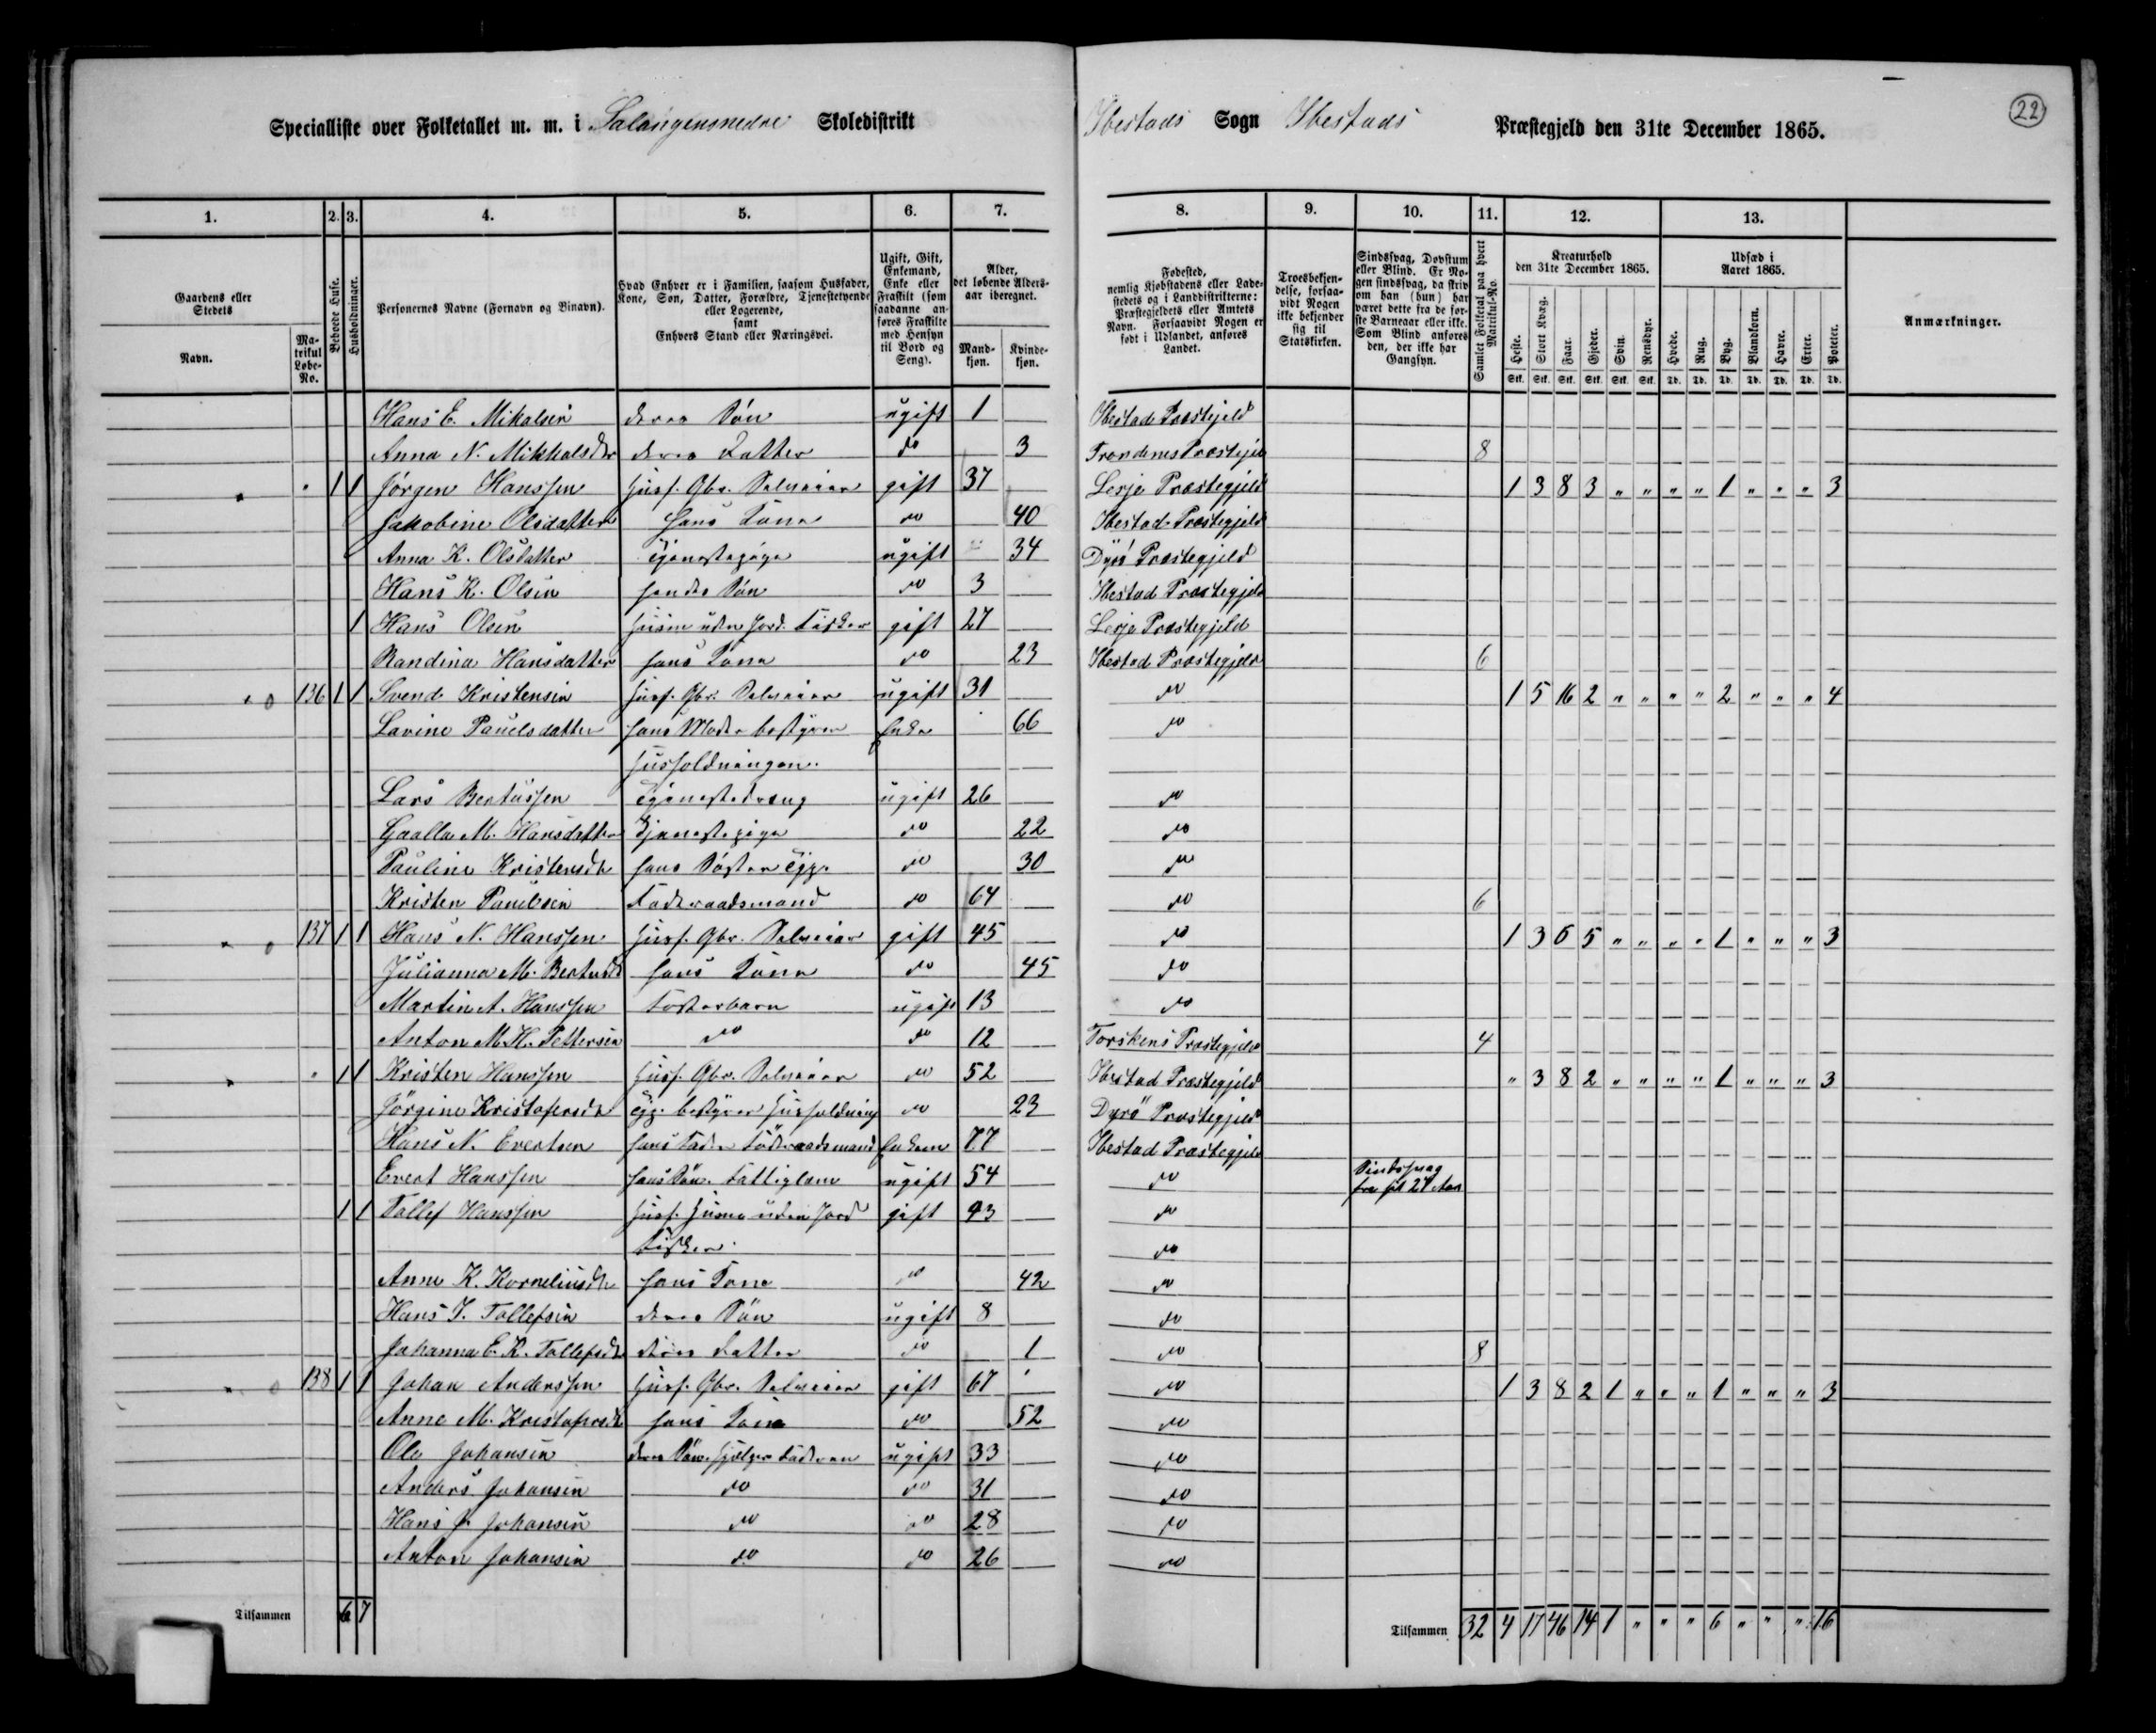 22
Specialliste over Folketallet m. m. i Salangensnedre Skoledistrikt Ibestads Sogn Ibestads Præstegjeld den 31te December 1865.
1. 2. 3. 4. 5. 6. 7. 8. 9. 10. 11. 12. 13.
Gaardens eller Stedets Navn.
Matrikul Løbe-No.
Beboede Huse.
Husholdninger.
Personernes Navne (Fornavn og Binavn).
Hvad Enhver er i Familien, saasom Husfader, Kone, Søn, Datter, Forældre, Tjenestetyende eller Logerende, samt Enhvers Stand eller Næringsvei.
Ugift, Gift, Enkemand, Enke eller Fraskilt (som saadanne anføres Fraskilte med Hensyn til Bord og Seng).
Alder, det løbende Aldersaar iberegnet.
Mandkjøn. Kvindekjøn.
Fødested, nemlig Kjøbstadens eller Ladestedets og i Landdistrikterne: Præstegjeldets eller Amtets Navn. Forsaavidt Nogen er født i Udlandet, anføres Landet.
Troesbekjendelse, forsaavidt Nogen ikke bekjender sig til Statskirken.
Sindssvag, Døvstum eller Blind. Er Nogen sindssvag, da skriv om han (hun) har været dette fra de første Barneaar eller ikke. Som Blind anføres den, der ikke har Gangsyn.
Samlet Folketal paa hvert Matrikul-No.
Kreaturhold den 31te December 1865.
Heste. Stort Kvæg. Faar. Gjeder. Svin. Rensdyr.
Udsæd i Aaret 1865.
Hvede. Rug. Byg. Blandkorn. Havre. Erter. Poteter.
Stk. Stk. Stk. Stk. Stk. Stk. Td. Td. Td. Td. Td. Td. Td.
Anmærkninger.
Hans E. Mikalsen deres Søn ugift 1 Ibestad Præstejeld
Anna N. Mikkalsdtr deres Datter do 3 Trondenes Præstejeld 8
" 1 1 Jørgen Hanssen Husf. Gbr. Selveier gift 37 Lesje Præstegjeld 1 3 8 3 " " " " 1 " " " 3
Jakobine Olsdatter hans Kone do 40 Ibestad Præstegjeld
Anna K. Olsdatter Tjenestepige ugift 34 Dyrö Præstegjeld
Hans K. Olsen hendes Søn do 3 Ibestad Præstegjeld
1 Hans Olsen Husm uden Jord. Fisker gift 27 Lesje Præstegjeld
Randina Hansdatter hans Kone do 23 Ibestad Præstegjeld 6
136 1 1 Svend Kristensen Husf. Gbr. Selveier ugift 31 do 1 5 16 2 " " " " 2 " " " 4
Lavine Pauelsdatter hans Moder bestyrer Enke 66 do
Husholdningen.
Lars Bertussen Tjenestedreng ugift 26 do
M. Hansdatter Tjenestepige do 22 do
Pauline Kristensdtr hans Søster Tjp. do 30 do
Kristen Pauelsen Føderaadsmand do 64 do 6
137 1 1 Hans N. Hanssen Husf. Gbr. Selveier gift 45 do 1 3 6 5 " " " " 1 " " " 3
Julianna M. Bertusdtr hans Kone do 45 do
Martin A. Hanssen Fosterbarn ugift 13 do
Anton M. H. Pettersen do do 12 Torskens Præstegjeld 4
" 1 1 Kristen Hanssen Husf. Gbr. Selveier do 52 Ibestad Præstegjeld " 3 8 2 " " " " 1 " " " 3
Jörgine Kristofersdtr Tjp. bestyrer Husholdning do 23 Dyrö Præstegjeld
Hans N. Evertsen hans Fader Føderaadsmand Enkem 77 Ibestad Præstegjeld
Evert Hanssen hans Søn. Fattiglem ugift 54 do Sindssvag
fra sit 27 Aar
1 1 Tollef Hanssen Husf. Husm uden Jord gift 43 do
Fisker. do
Anne K. Korneliusdtr hans Kone do 42 do
Hans J. Tollefsen deres Søn ugift 8 do
Johanna E. K. Tollefsdtr deres Datter do 1 do 8
138 1 1 Johan Anderssen Husf. Gbr. Selveier gift 67 do 1 3 8 2 1 " " " 1 " " " 3
Anne M. Kristofersdtr hans Kone do 52 do
Ole Johansen deres Søn. hjelper Faderen ugift 33 do
Anders Johansen do do 31 do
Hans J. Johansen do do 28 do
Anton Johansen do do 26 do
Tilsammen 6 7 Tilsammen 32 4 17 46 14 1 " " " 6 " " " 16